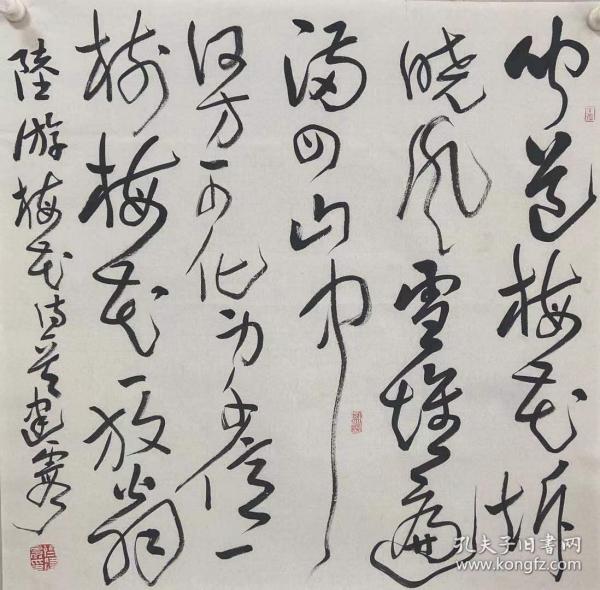 聞道梅花坼
曉風雪堆遍
滿四山中
何方可化身千億一
樹梅花一放翁
陸游梅花诗
孔夫子旧书网
www.kongfz.com